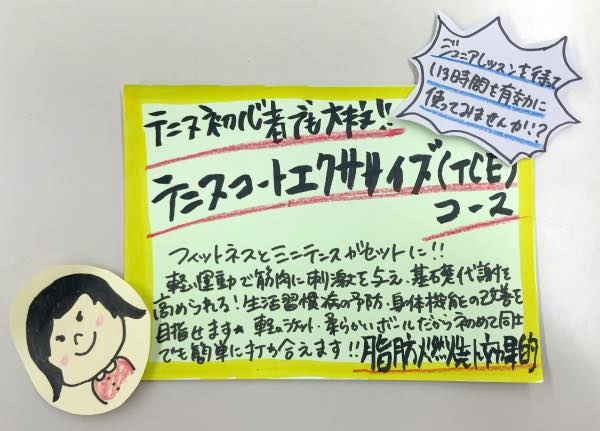 ジュニアレッスンを待って
いる時間を有効に
使ってみませんか!?
テニス初心者でも大丈夫!!
テニスコートエクササイズ(TCE)
コース
フィットネスとミニテニスがセットに!!
軽い運動で筋肉に刺激を与え、基礎代謝を
高められる!生活習慣病の予防・身体機能の改善を
目指せます★ 軽いラケット・柔らかいボールだから初めて同士
でも簡単に打ち合えます!!脂肪燃焼に効果的